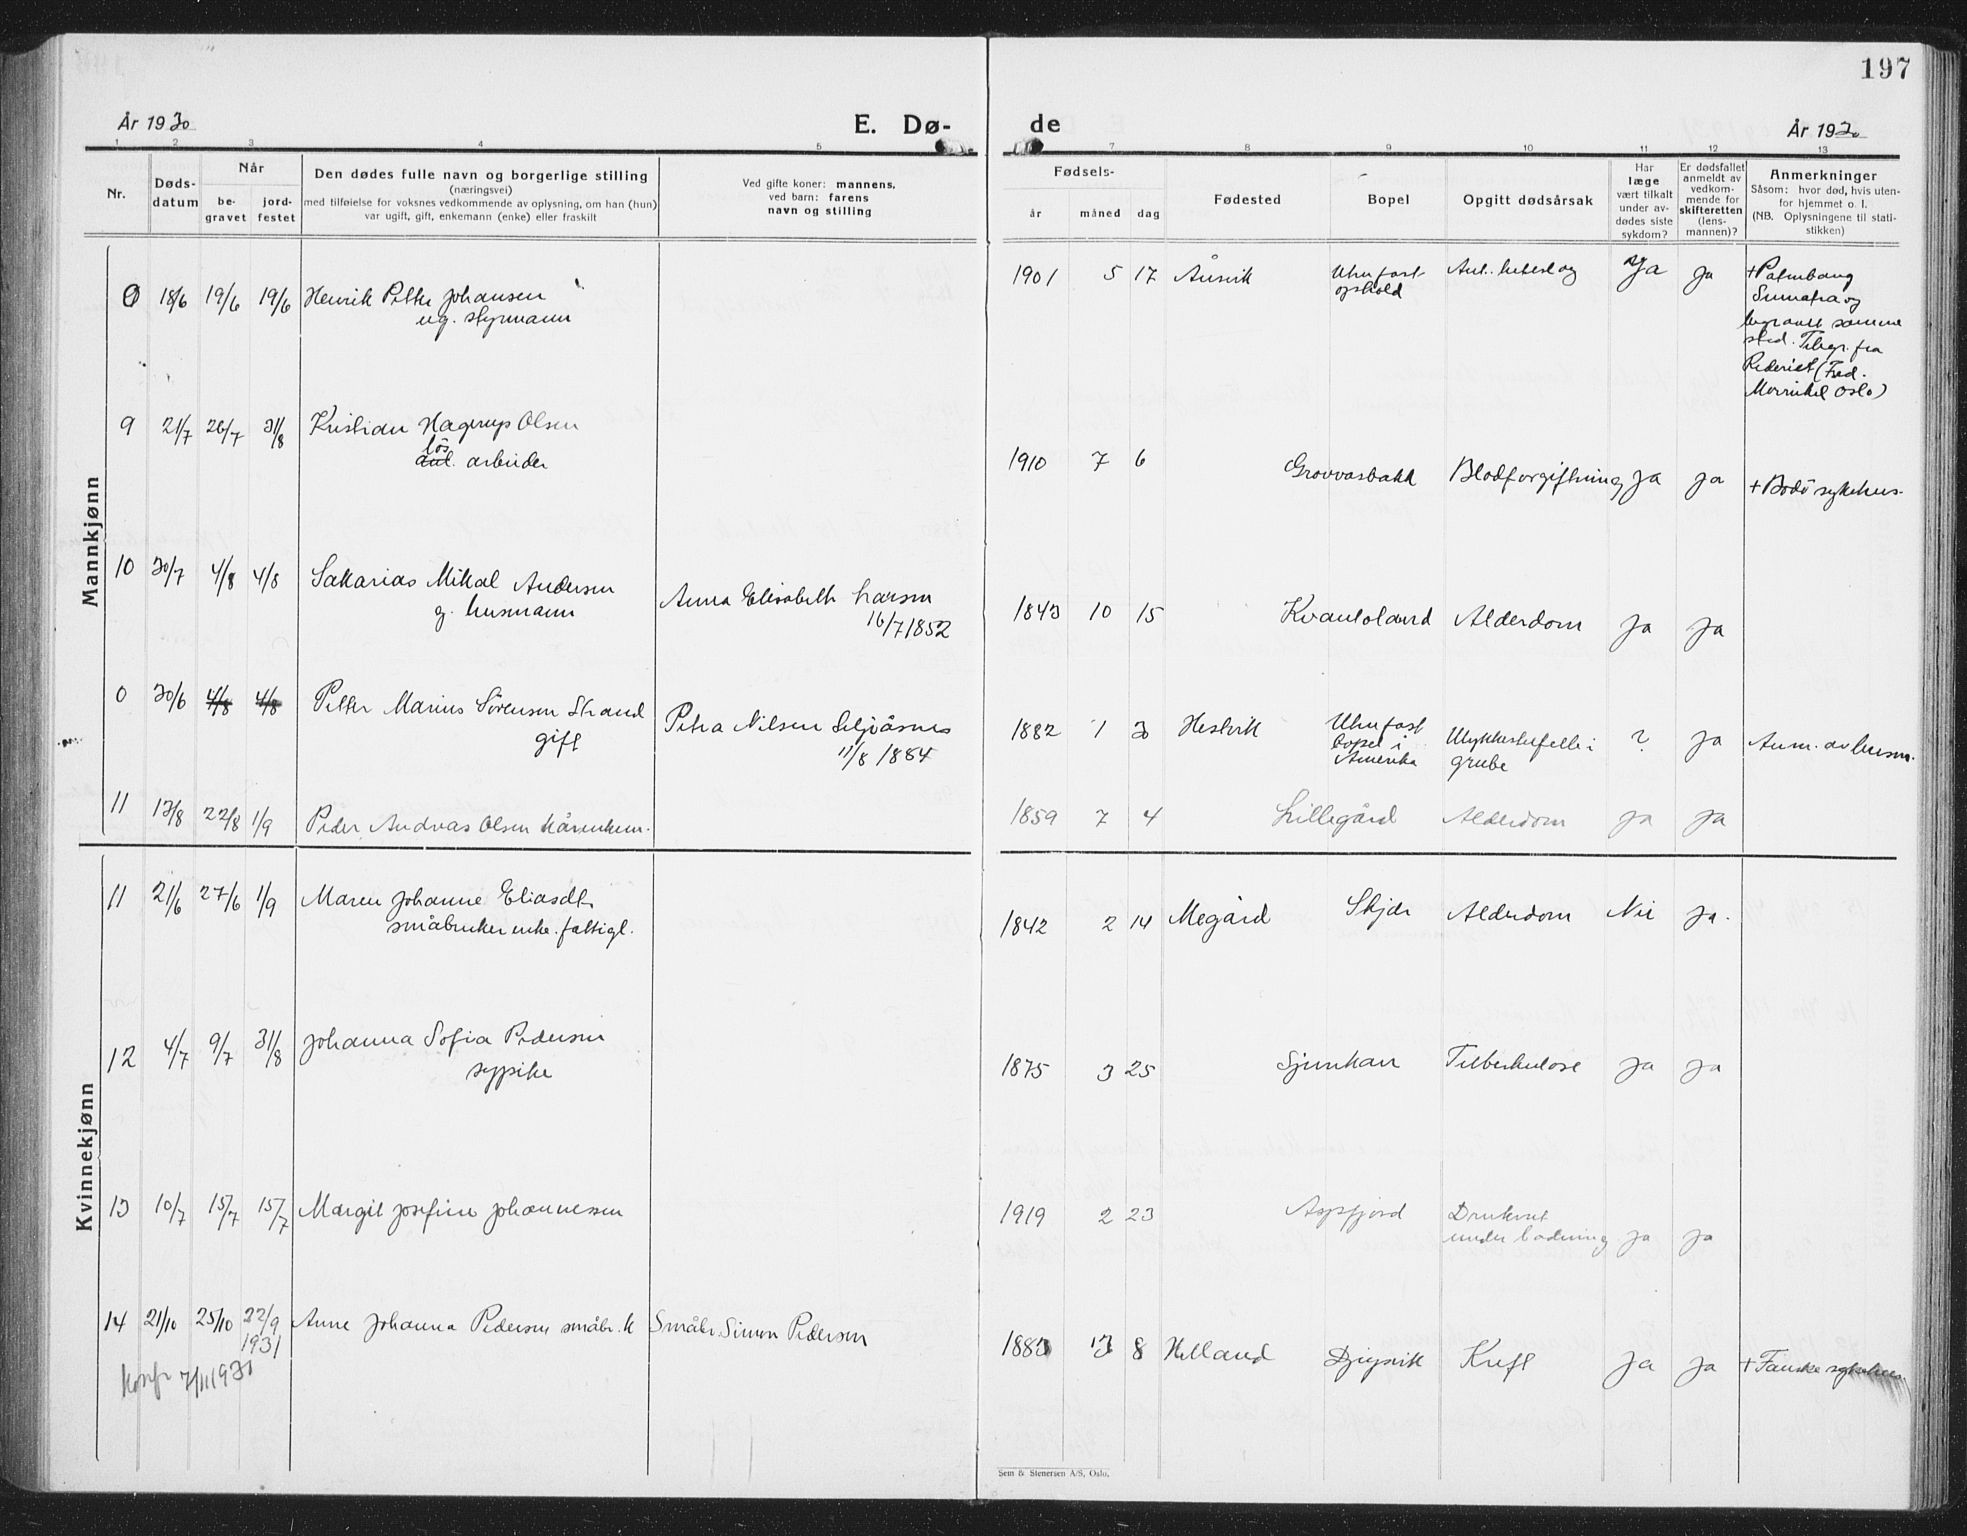 197
År 1930
E. Dø-
de
År 1930
1 2 3 4 5 7 8 9 10 11 12 13
Nr.
Døds-
datum
Når
be-
gravet
jord-
festet
Den dødes fulle navn og borgerlige stilling
(næringsvei)
med tilføielse for voksnes vedkommende av oplysning, om han (hun)
var ugift, gift, enkemann (enke) eller fraskilt
Ved gifte koner: mannens,
ved barn: farens
navn og stilling
Fødsels-
år måned dag
Fødested
Bopel
Opgitt dødsårsak
Har
læge
vært tilkalt
under av-
dødes siste
sykdom?
Er dødsfallet
anmeldt av
vedkom-
mende for
skifteretten
(lens-
mannen)?
Anmerkninger
Såsom: hvor død, hvis uten-
for hjemmet o. l.
(NB. Oplysningene til stati-
stikken)
Mannkjønn
0 18/6 19/6 19/6 Henrik Petter Johansen
ug. styrmann
1901 5 17 Ånsvik
Uten fast
opshold
Ja Ja
+ Palembang
Sumatra og
begravet samme
sted. Telegr. fra
Rederiet (Fred.
Oslo)
9 21/7 26/7 31/8 Kristian Hagerup Olsen
løs
arbeider
1910 7 6 Grovvasbakk Blodforgiftning Ja Ja + Bodö sykehus
10 30/7 4/8 4/8 Sakarias Mikal Andersen
g. husmann
Anna Elisabeth Larsen
16/7 1852
1843 10 15 Kvantoland Alderdom Ja Ja
0 30/6 4/8 4/8 Petter Marius Sörensen Strand
gift
Petra Nilsen Seljåsnes
11/8 1884
1882 1 30 Hestvik
Uten fast
bopel i
Amerika
Ulykkestilfelle i
grube
? Ja Anm. av
11 13/8 22/8 1/9 Peder Andreas Olsen
1859 7 4 Lillegård Alderdom Ja Ja
Kvinnekjønn
11 21/6 27/6 1/9 Maren Johanne Eliasdtr
småbruker enke. fattigl.
1842 2 14 Megård Skjær Alderdom Nei Ja.
12 4/7 9/7 31/8 Johanna Sofia Pedersen
sypike
1875 3 25 Sjunkan Tuberkulose Ja Ja
13 10/7 15/7 15/7 Margit Josefine Johannessen
1919 2 23 Aspfjord
Druknet
under badning Ja Ja
14 21/10 25/10 22/9
1931
Anne Johanna Pedersen småbr. k Småbr. Simon Pedersen
1883 8 Helland Djupvik Kreft Ja Ja + Fauske sykehus
7/11 1930
Sem & Stenersen A/S, Oslo.